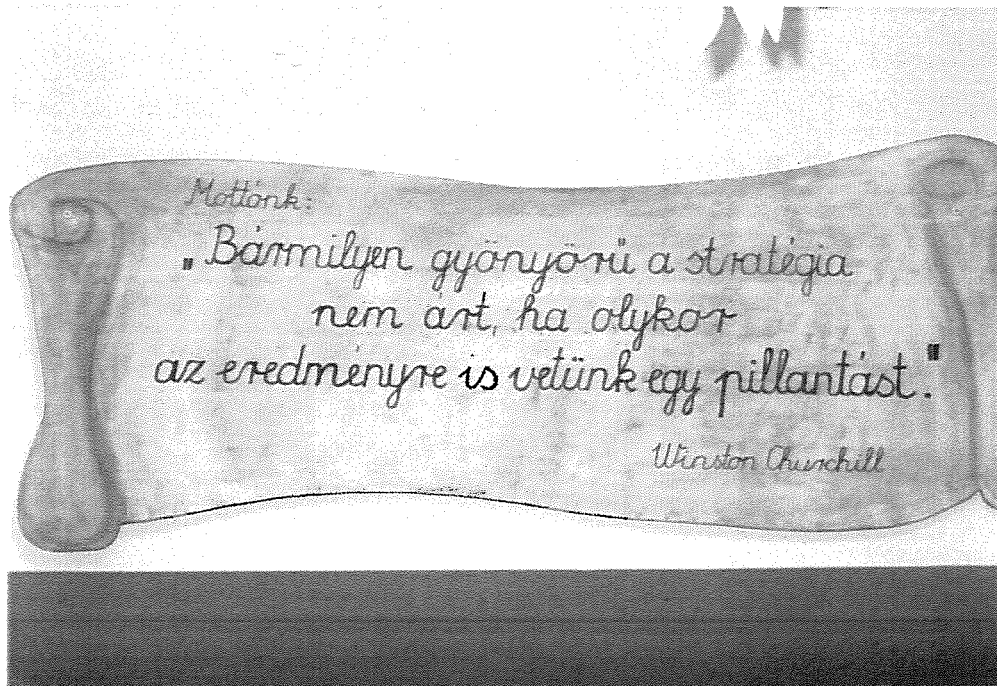 Mottónk:
„Bármilyen gyönyörű a stratégia
nem árt, ha olykor
az eredményre is vetünk egy pillantást."
Winston Churchill